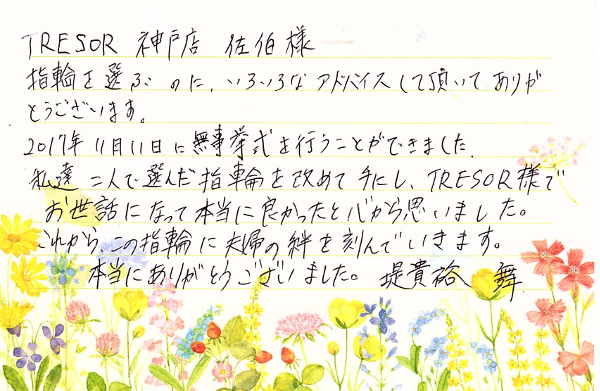 TRESOR 神戸店 佐伯様
指輪を選ぶのに、いろいろなアドバイスして頂いてありが
とうございます。
2017年11月11日に無事挙式を行うことができました。
私達二人で選んだ指輪を改めて手にし、TRESOR様で
お世話になって本当に良かったと心から思いました。
これから、この指輪に夫婦の絆を刻んでいきます。
本当にありがとうございました。堤貴裕 舞